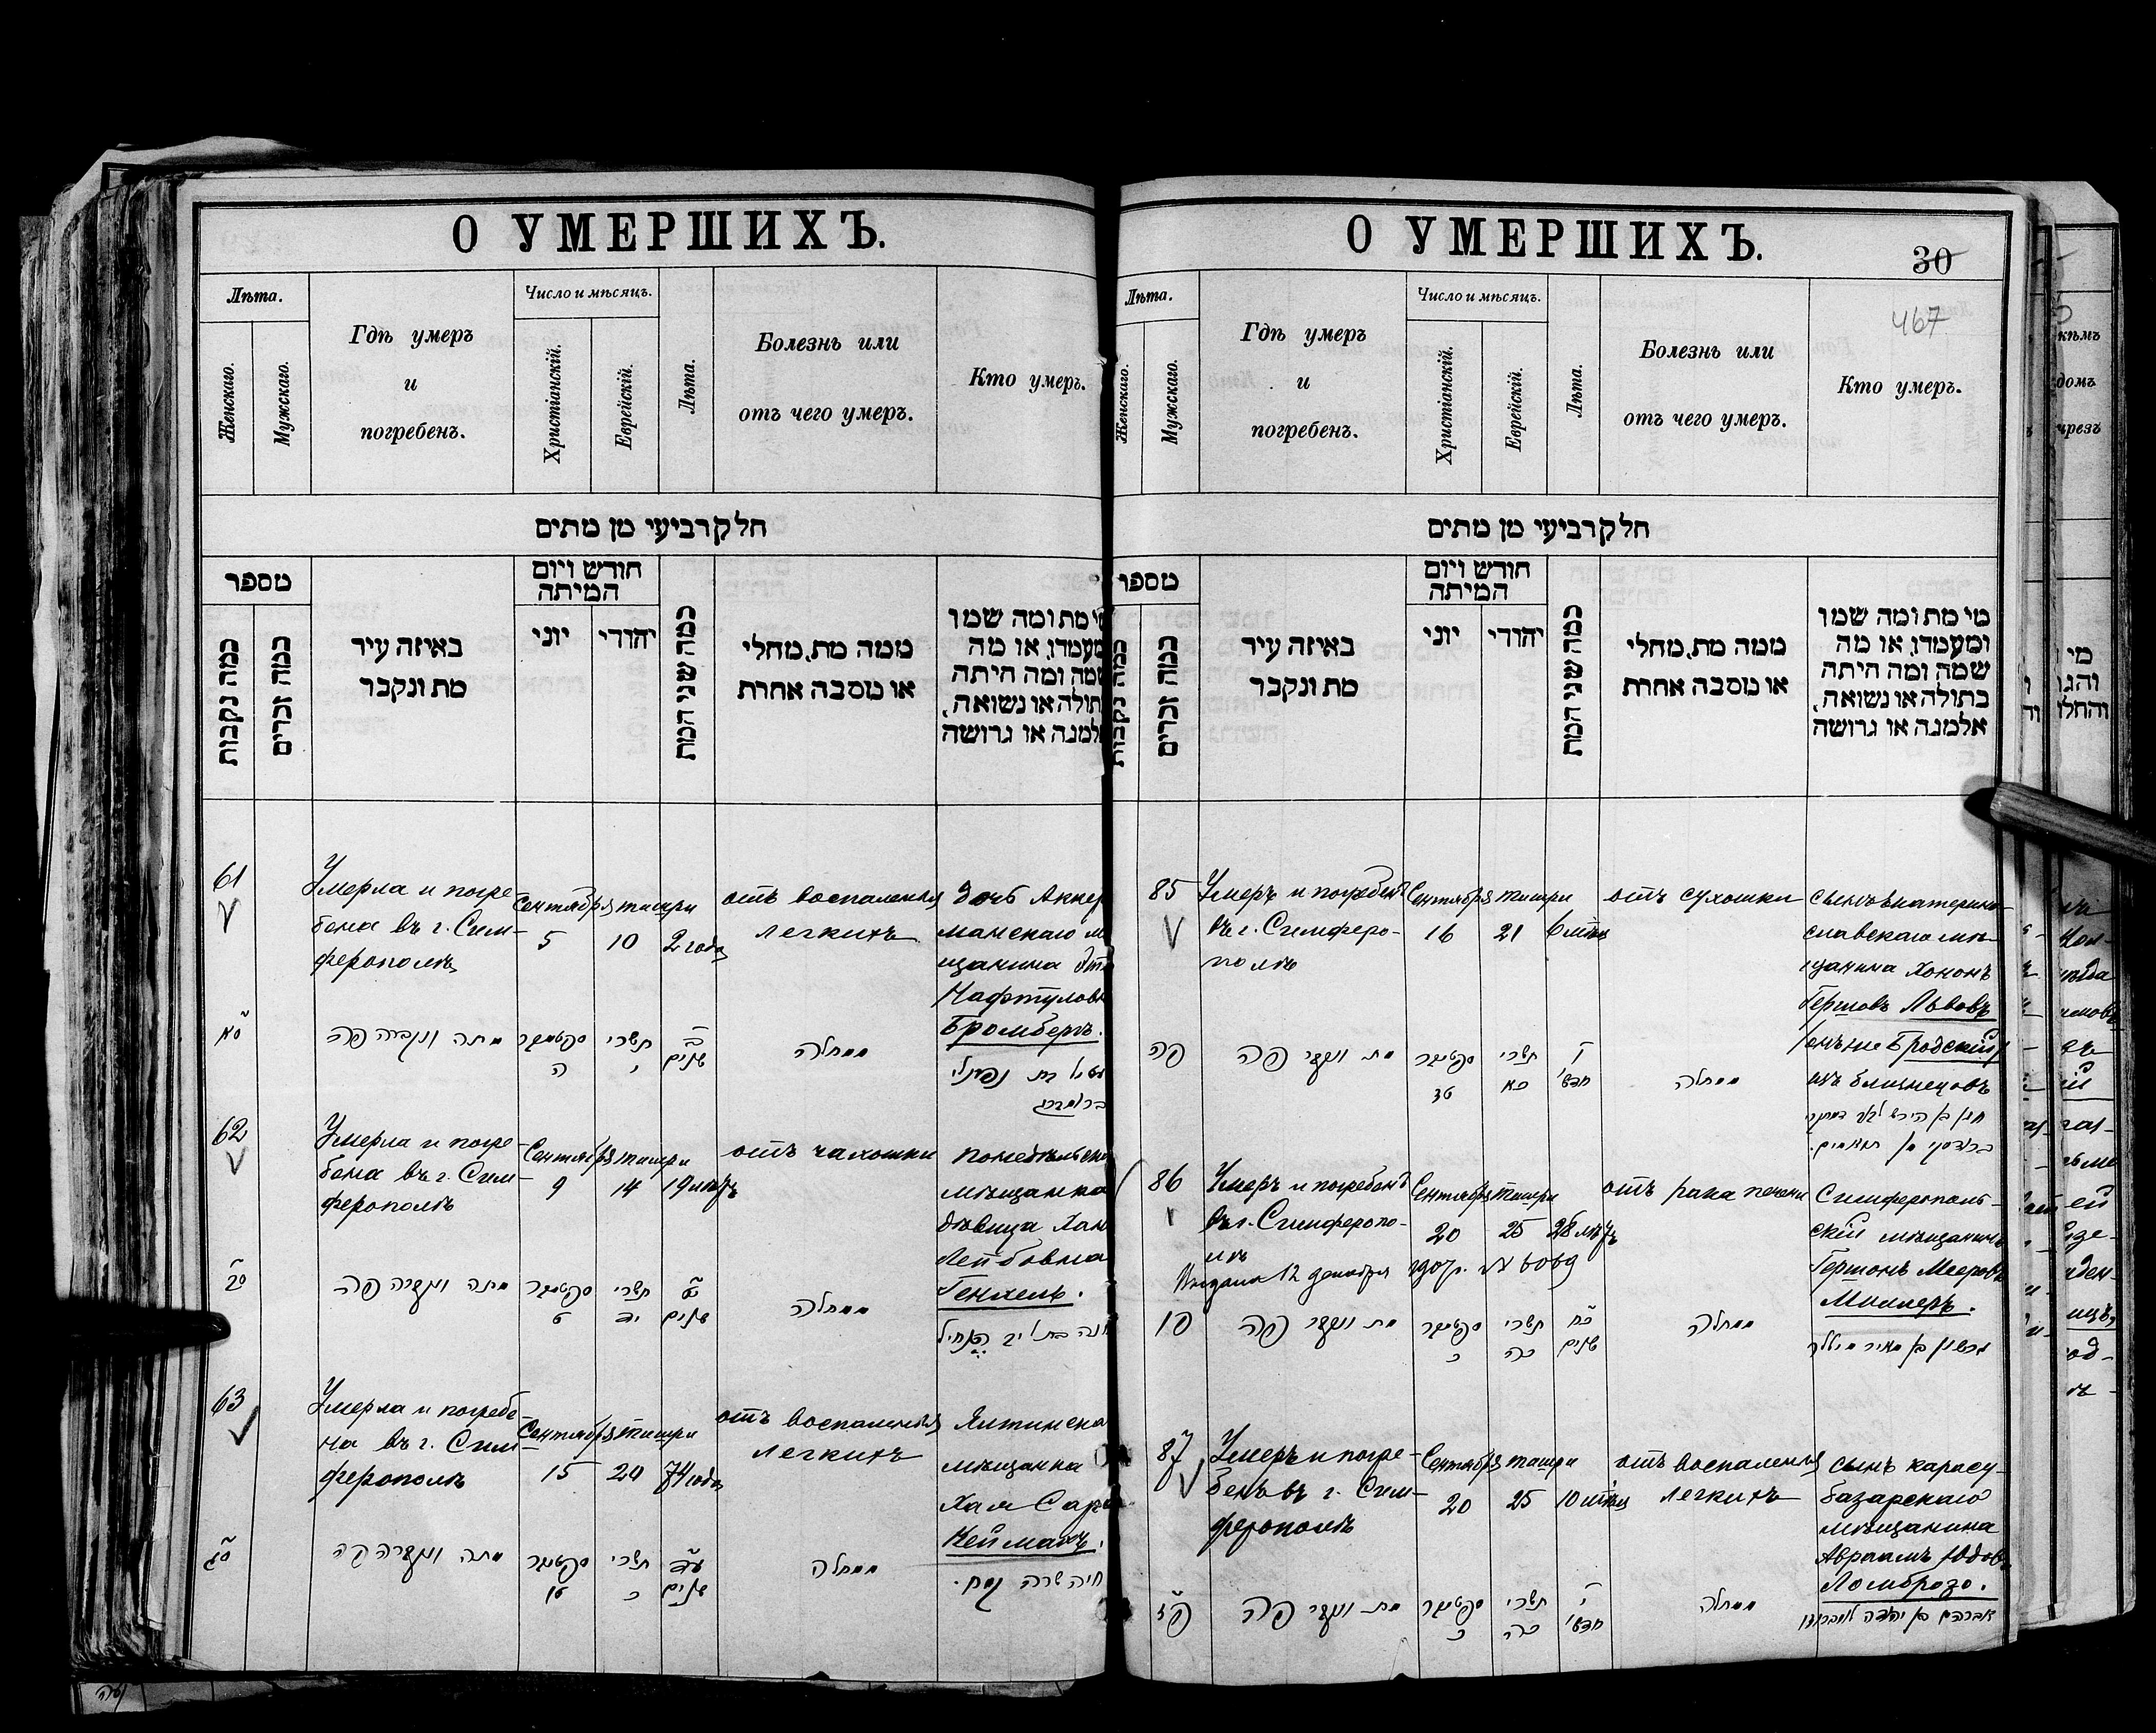 О УМЕРШИХЪ.
Лѣта.
Женскаго.
Мужскаго.
Гдѣ умеръ
и
погребенъ.
Число и мѣсяцъ.
Христіанскій.
Еврейскій.
Лѣта.
Болезнь или
отъ чего умеръ.
Кто умеръ.
חלק רביעי מן מתים
מספר
כמה נקבות
כמה זכרים
באיזה עיר
מת ונקבר
חודש ויום
המיתה
יוני
יהודי
כמה שני המת
ממה מת, מחלי
או מסבה אחרת
מי מת ומה שמו
ומעמדו, או מה
שמה ומה היתה
בתולה או נשואה,
אלמנה או גרושה
61
Умерла и погре-
бена въ г. Сим-
ферополѣ
Сентября
5
тишри
10
2 года
отъ воспаленія
легкихъ
дочь Аккер
манскаго м
щанина
Нафтулов
Бромбергъ.
סא
מתה ונקברה פה
סקטמבר
ה
תשרי
י
ב
שנים
ממחלה
בת נפתלי
ברומברג
62
Умерла и погре-
бена въ г. Сим-
ферополѣ
Сентября
9
тишри
14
19 лѣтъ
отъ чахотки
Понедѣльска
мѣщанка
дѣвица Хан
Лейбовна
Генхель.
סב
מתה ונקברה פה
סקטמבר
ט
תשרי
יד
יט
שנים
ממחלה
חנה בת ליב
63
Умерла и погребе-
на въ г. Сим-
ферополѣ
Сентября
15
тишри
20
74 года
отъ воспаленія
легкихъ
Ялтинска
мѣщанка
Хая Сара
Нейманъ.
סג
מתה ונקברה פה
סקטמבר
טו
תשרי
כ
עד
שנים
ממחלה
חיה שרה
О УМЕРШИХЪ.
30
467
Лѣта.
Женскаго.
Мужскаго.
Гдѣ умеръ
и
погребенъ.
Число и мѣсяцъ.
Христіанскій.
Еврейскій.
Лѣта.
Болезнь или
отъ чего умеръ.
Кто умеръ.
חלק רביעי מן מתים
מספר
כמה נקבות
כמה זכרים
באיזה עיר
מת ונקבר
חודש ויום
המיתה
יוני
יהודי
כמה שני המת
ממה מת, מחלי
או מסבה אחרת
מי מת ומה שמו
ומעמדו, או מה
שמה ומה היתה
בתולה או נשואה,
אלמנה או גרושה
85
Умеръ и погребенъ
въ г. Симферо-
полѣ
Сентября
16
тишри
21
6 мѣс
отъ сухотки
сынъ екатерино-
славскаго мѣ-
щанина Хононъ
Гершовъ Львовъ
/онъ же Бродскій/
изъ близнецовъ
פה
מת ונקבר פה
סקטמבר
טז
תשרי
כא
ו
חדשי
ממחלה
86
Умеръ и погребенъ
въ г. Симферопо-
лѣ
Выдана 12 декабря 1907 г. № 6069
Сентября
20
тишри
25
28 лѣтъ
отъ рака печени
Симферополь-
скій мѣщанинъ
Гершонъ Мееровъ
Миллеръ.
פו
מת ונקבר פה
סקטמבר
כ
תשרי
כה
כח
שנים
ממחלה
גרשון בן מאיר מיללר
87
Умеръ и погре-
бенъ въ г. Сим-
ферополѣ
Сентября
20
тишри
25
10 мѣс
отъ воспаленія
легкихъ
сынъ карасу-
базарскаго
мѣщанина
Авраамъ Юдовъ
Ломброзо.
פז
מת ונקבר פה
סקטמבר
כ
תשרי
כה
י
חדשי
ממחלה
אברהם בן יהודה לומברוזו